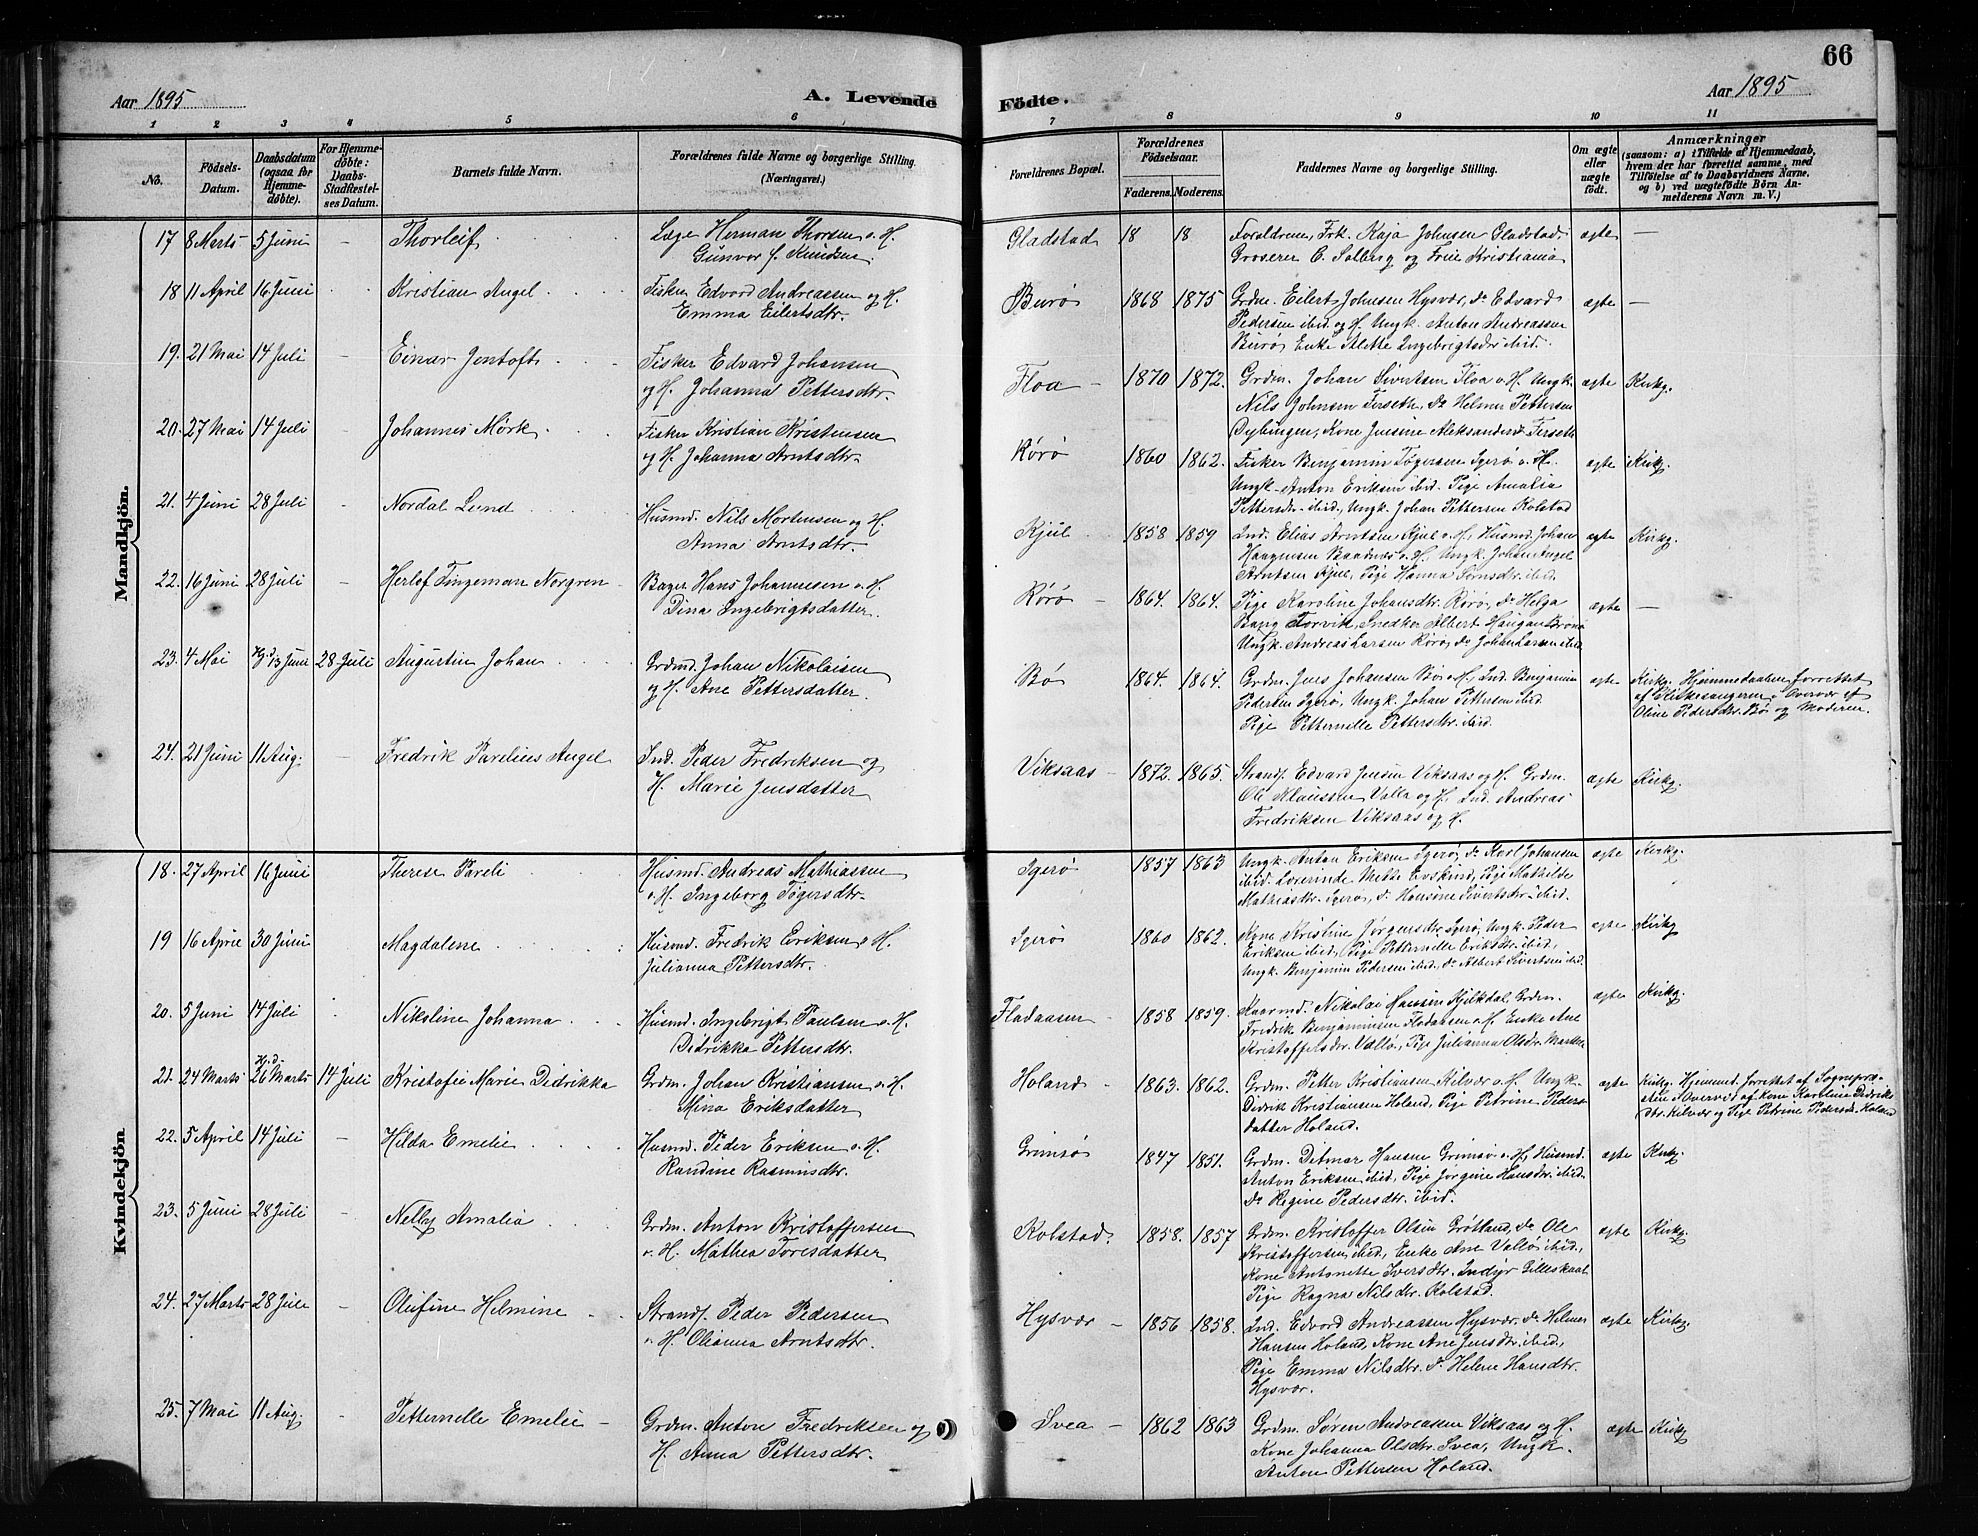 66
Aar 1895
A. Levende
Födte.
Aar 1895
1 2 3 4 5 6 7 8 9 10 11
No.
Födsels-
Datum.
Daabsdatum
(ogsaa for
Hjemme-
döbte).
For Hjemme-
döbte:
Daabs-
Stadfæstel-
ses Datum.
Barnets fulde Navn.
Forældrenes fulde Navne og borgerlige Stilling.
(Næringsvei.)
Forældrenes Bopæl.
Forældrenes
Födselsaar.
Faderens. Moderens.
Faddernes Navne og borgerlige Stilling.
Om ægte
eller
uægte
födt.
Anmærkninger
(saasom: a) i Tilfælde af Hjemmedaab,
hvem der har forrettet samme, med
Tilföielse af to Daabsvidners Navne,
og b) ved uægtefödte Börn An-
melderens Navn m. V.)
Mandkjön.
17 8 Marts 5 Juni - Thorleif
Læge Herman Thorsen o. H.
Gunvor f. Knudsen.
Gladstad 18 18
Forældrene, Frk. Kaja Johnsen Gladstad,
Groserer C. Solberg og Frue Kristiania
ægte -
18 11 April 16 Juni Kristian Angel
Fisker Edvard Andreassen og H.
Emma Eilertsdtr.
Burø 1868 1875
Grdm. Eilert Johnsen Hysvær, do Edvard
Pedersen ibid og H. Ungk. Anton Andreassen
Burø Enke Alette Ingebrigtsdtr ibid.
ægte -
19. 21 Mai 14 Juli - Einar Jentoft
Fisker Edvard Johansen
og H. Johanna Pettersdtr.
Floa - 1870 1872.
Grdm. Johan Sivertsen Floa o. H. Ungk.
Nils Johnsen Forseth, do Helmer Pettersen
Dybingen, Kone Jensine Aleksandersd. Forseth
ægte Kirkg.
20. 27 Mai 14 Juli - Johannes Mörk
Fisker Kristian Kristensen
og H. Johanna Arntsdtr.
Rørø 1860 1862.
Fisker Benjamin Tøgersen Igerø o. H.
Ungk. Anton Eriksen ibid. Pige Amalia
Pettersdtr. ibid, Ungk. Johan Pettersen Kolstad
ægte Kirkg.
21. 4 Juni 28 Juli - Nordal Lund
Husmd. Nils Mortensen og H.
Anna Arntsdtr.
Kjul - 1858 1859
Ind. Elias Arntsen Kjul o. H. Husmd. Johan
Haagensen Baadnæs o. H. Ungk. Johan Angel
Arntsen Kjul, Pige Hanna Sørnsdtr. ibid.
ægte Kirkg.
22. 16 Juni 28 Juli - Herlof Tingeman Norgren
Bager Hans Johannesen o. H.
Dina Ingebrigtsdatter.
Rørø - 1864. 1864.
Pige Karoline Johansdtr. Rørø, do Helga
Bang Torvik, Snedker Albert Haugan Brønø
Ungk. Andreas Larsen Rørø, do Johan Larsen ibid
ægte -
23. 4 Mai Hj.d. 13 Juni 28 Juli Augustin Johan
Grdmd. Johan Nikolaisen
og H. Ane Pettersdatter.
Bø 1864. 1864.
Grdm. Jens Johansen Bø o. H., Ind. Benjamin
Pedersen Igerø, Ungk. Johan Pettersen ibid
Pige Petternelle Pettersdtr. ibid.
ægte
Kirkg. Hjemmedaaben forrettet
af Kirkesangeren i Overvær af
Oline Pedersdtr. Bø og Moderen.
24. 21 Juni 11 Aug. - Fredrik Parelius Angel
Ind. Peder Fredriksen og
H. Marie Jensdatter
Viksaas - 1872. 1865.
Strands. Edvard Jensen Viksaas og H. Grdm.
Ole Klaussen Valla og H. Ind. Andreas
Fredriksen Viksaas og H.
ægte Kirkg.
Kvindekjön
18. 27 April 16 Juni Therese Pareli
Husmd. Andreas Mathiassen
o. H. Ingeborg Tøgersdtr.
Igerø 1857 1863
Ungk. Anton Eriksen Igerø, do Karl Johansen
ibid. Lærerinde Mette Evskind, Pige Mathilde
Mathiasdtr. Igerø, do Hansine Sivertsdtr. ibid.
ægte Kirkg.
19 16 April 30 Juni Magdalene
Husmd. Fredrik Eriksen o. H.
Julianna Pettersdtr.
Igerø 1860 1862.
Kone Kristine Jørgensdtr. Igerø, Ungk. Peder
Eriksen ibid, Pige Petternelle Eriksdtr. ibid,
Ungk. Benjamin Pedersen ibid, do Albert Sivertsen ibid.
ægte Kirkg
20. 5 Juni 14 Juli Nikoline Johanna
Husmd. Ingebrigt Paulsen o. H.
Didrikka Pettersdtr.
Fladaasen - 1858 1859.
Kaarmd. Nikolai Hansen Kjelkdal, Grdm.
Fredrik Benjaminsen Fladaasen o. H. Enke Ane
Kristoffersdtr. Vallø, Pige Julianna Olsdtr. Marken
ægte Kirkg.
21. 24 Marts Hj.d. 26 Marts 14 Juli Kristofie Marie Didrikka
Grdm. Johan Kristiansen o. H.
Mina Eriksdatter
Holand - 1863. 1862.
Grdm. Petter Kristiansen Kilvær o. H. Ungk.
Didrik Kristiansen Holand, Pige Petrine Peders-
datter Holand.
ægte
Kirkg. Hjemmd. forrettet af Sognepræ-
sten i Overvær af Kone Karoline Didriks
dtr. Kilvær og Pige Petrine Pedersd. Holand
22. 5 April 14 Juli - Hilda Emelie
Husmd. Peder Eriksen o. H.
Randine Rasmusdtr.
Grimsø 1847 1851.
Grdm. Ditmar Hansen Grimsø o. H, Husmd.
Anton Eriksen ibid, Pige Jørgine Hansdtr. ibid.
do Regine Pedersdtr. ibid.
ægte Kirkg.
23. 5 Juni 28 Juli - Nelly Amalia
Grdm. Anton Kristoffersen
o. H. Mathea Toresdatter
Kolstad. 1858. 1857
Grdm. Kristoffer Olsen Grøtland, do Ole
Kristoffersen ibid, Enke Ane Vallø ibid,
Kone Antonette Iversdtr. Indyr Gilleskaal
Pige Ragna Nilsdtr. Kolstad.
ægte Kirkg.
24. 27 Marts 28 Juli - Olufine Helmine -
Strands. Peder Pedersen
o. H. Olianna Arntsdtr.
Hysvær - 1856 1858.
Ind. Edvard Andreassen Hysvær, do Helmer
Hansen Holand, Kone Ane Jensdtr. ibid,
Pige Emma Nilsdtr. do Helene Hansdtr.
Hysvær.
ægte Kirkg.
25. 7 Mai 11 Aug. - Petternelle Emelie -
Grdm. Anton Fredriksen og
H. Anna Pettersdtr.
Svea - 1862 1863
Grdm. Søren Andreassen Viksaas og H.
Kone Johanna Olsdtr. Svea, Ungk.
Anton Pettersen Holand.
ægte Kirkg